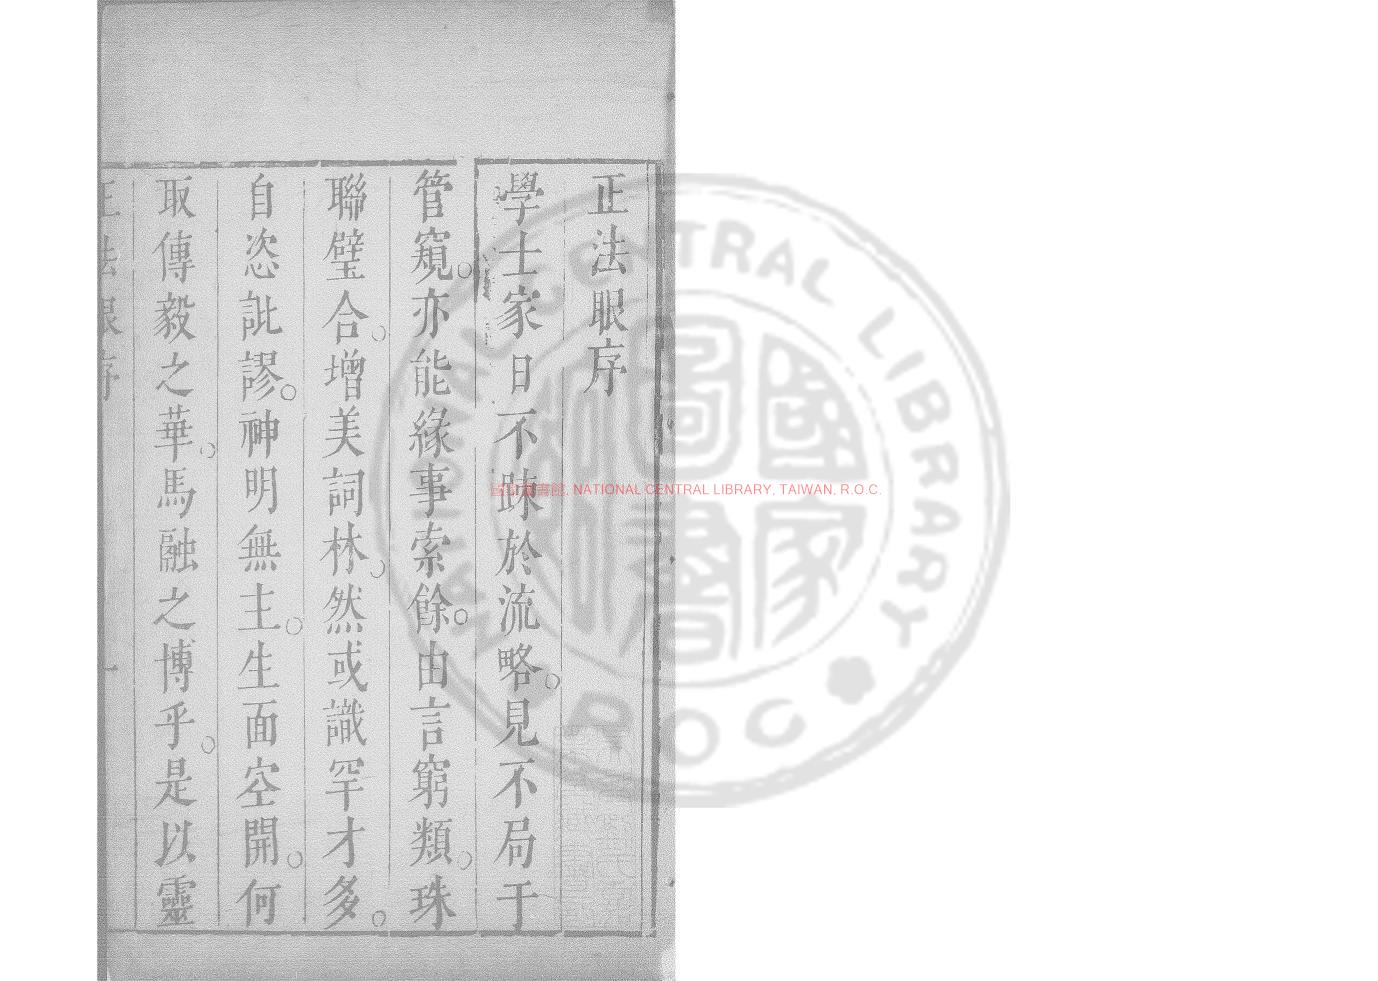 正法眼序
學士家日不踈於流略。見不局于
管窺。亦能緣事索餘。由言窮類。珠
聯璧合。增美詞林。然或識罕才多。
自恣訿謬。神明無主。生面空開。何
取傅毅之華。馬融之博乎。是以靈
正法眼序 一
國家圖書館, NATIONAL CENTRAL LIBRARY, TAIWAN, R.O.C.
NATIONAL CENTRAL LIBRARY
R O C
國家圖書